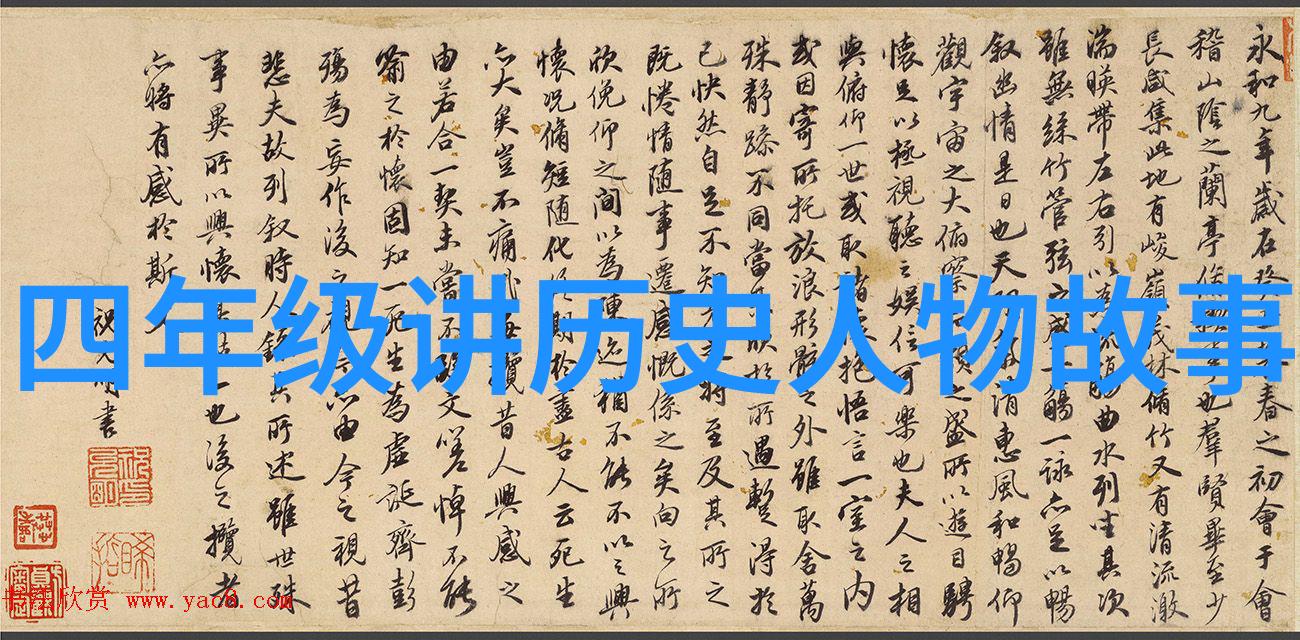 四年级讲历史人物故事
永和九年歲在春之初會于會
稽山陰之蘭亭也羣賢畢至少
長咸集此地有峻嶺茂林脩竹又有清流激
湍暎帶左右引以曲水列坐其次
雖無絲竹管弦一觴一詠亦足以暢
叙幽情是日也天清惠風和暢仰
觀宇宙之大俯察之盛所以遊目騁
懷足以極視聽之娛信可樂也夫人之相
與俯仰一世或取抱悟言一室之內
或因寄所托放浪形骸之外雖取舍萬
殊靜躁不同當於所遇暫得於
已快然自足不知將至及其所之
既惓情随事遷感慨係之矣向之所
欣俛仰之間以為迹不能不以之興
懷況脩短随化期於盡古人云死生
亦大矣豈不痛攬昔人興感之
由若合一契未嘗不文嗟悼不能
喻之於懷固知一死生為虛誕齊彭
殤為妄作後之亦由今之視昔
悲夫故列叙時人其所述雖世殊
事異所以興懷一也後之攬者
亦將有感於斯
祝書
书欣赏 www.yac8.com